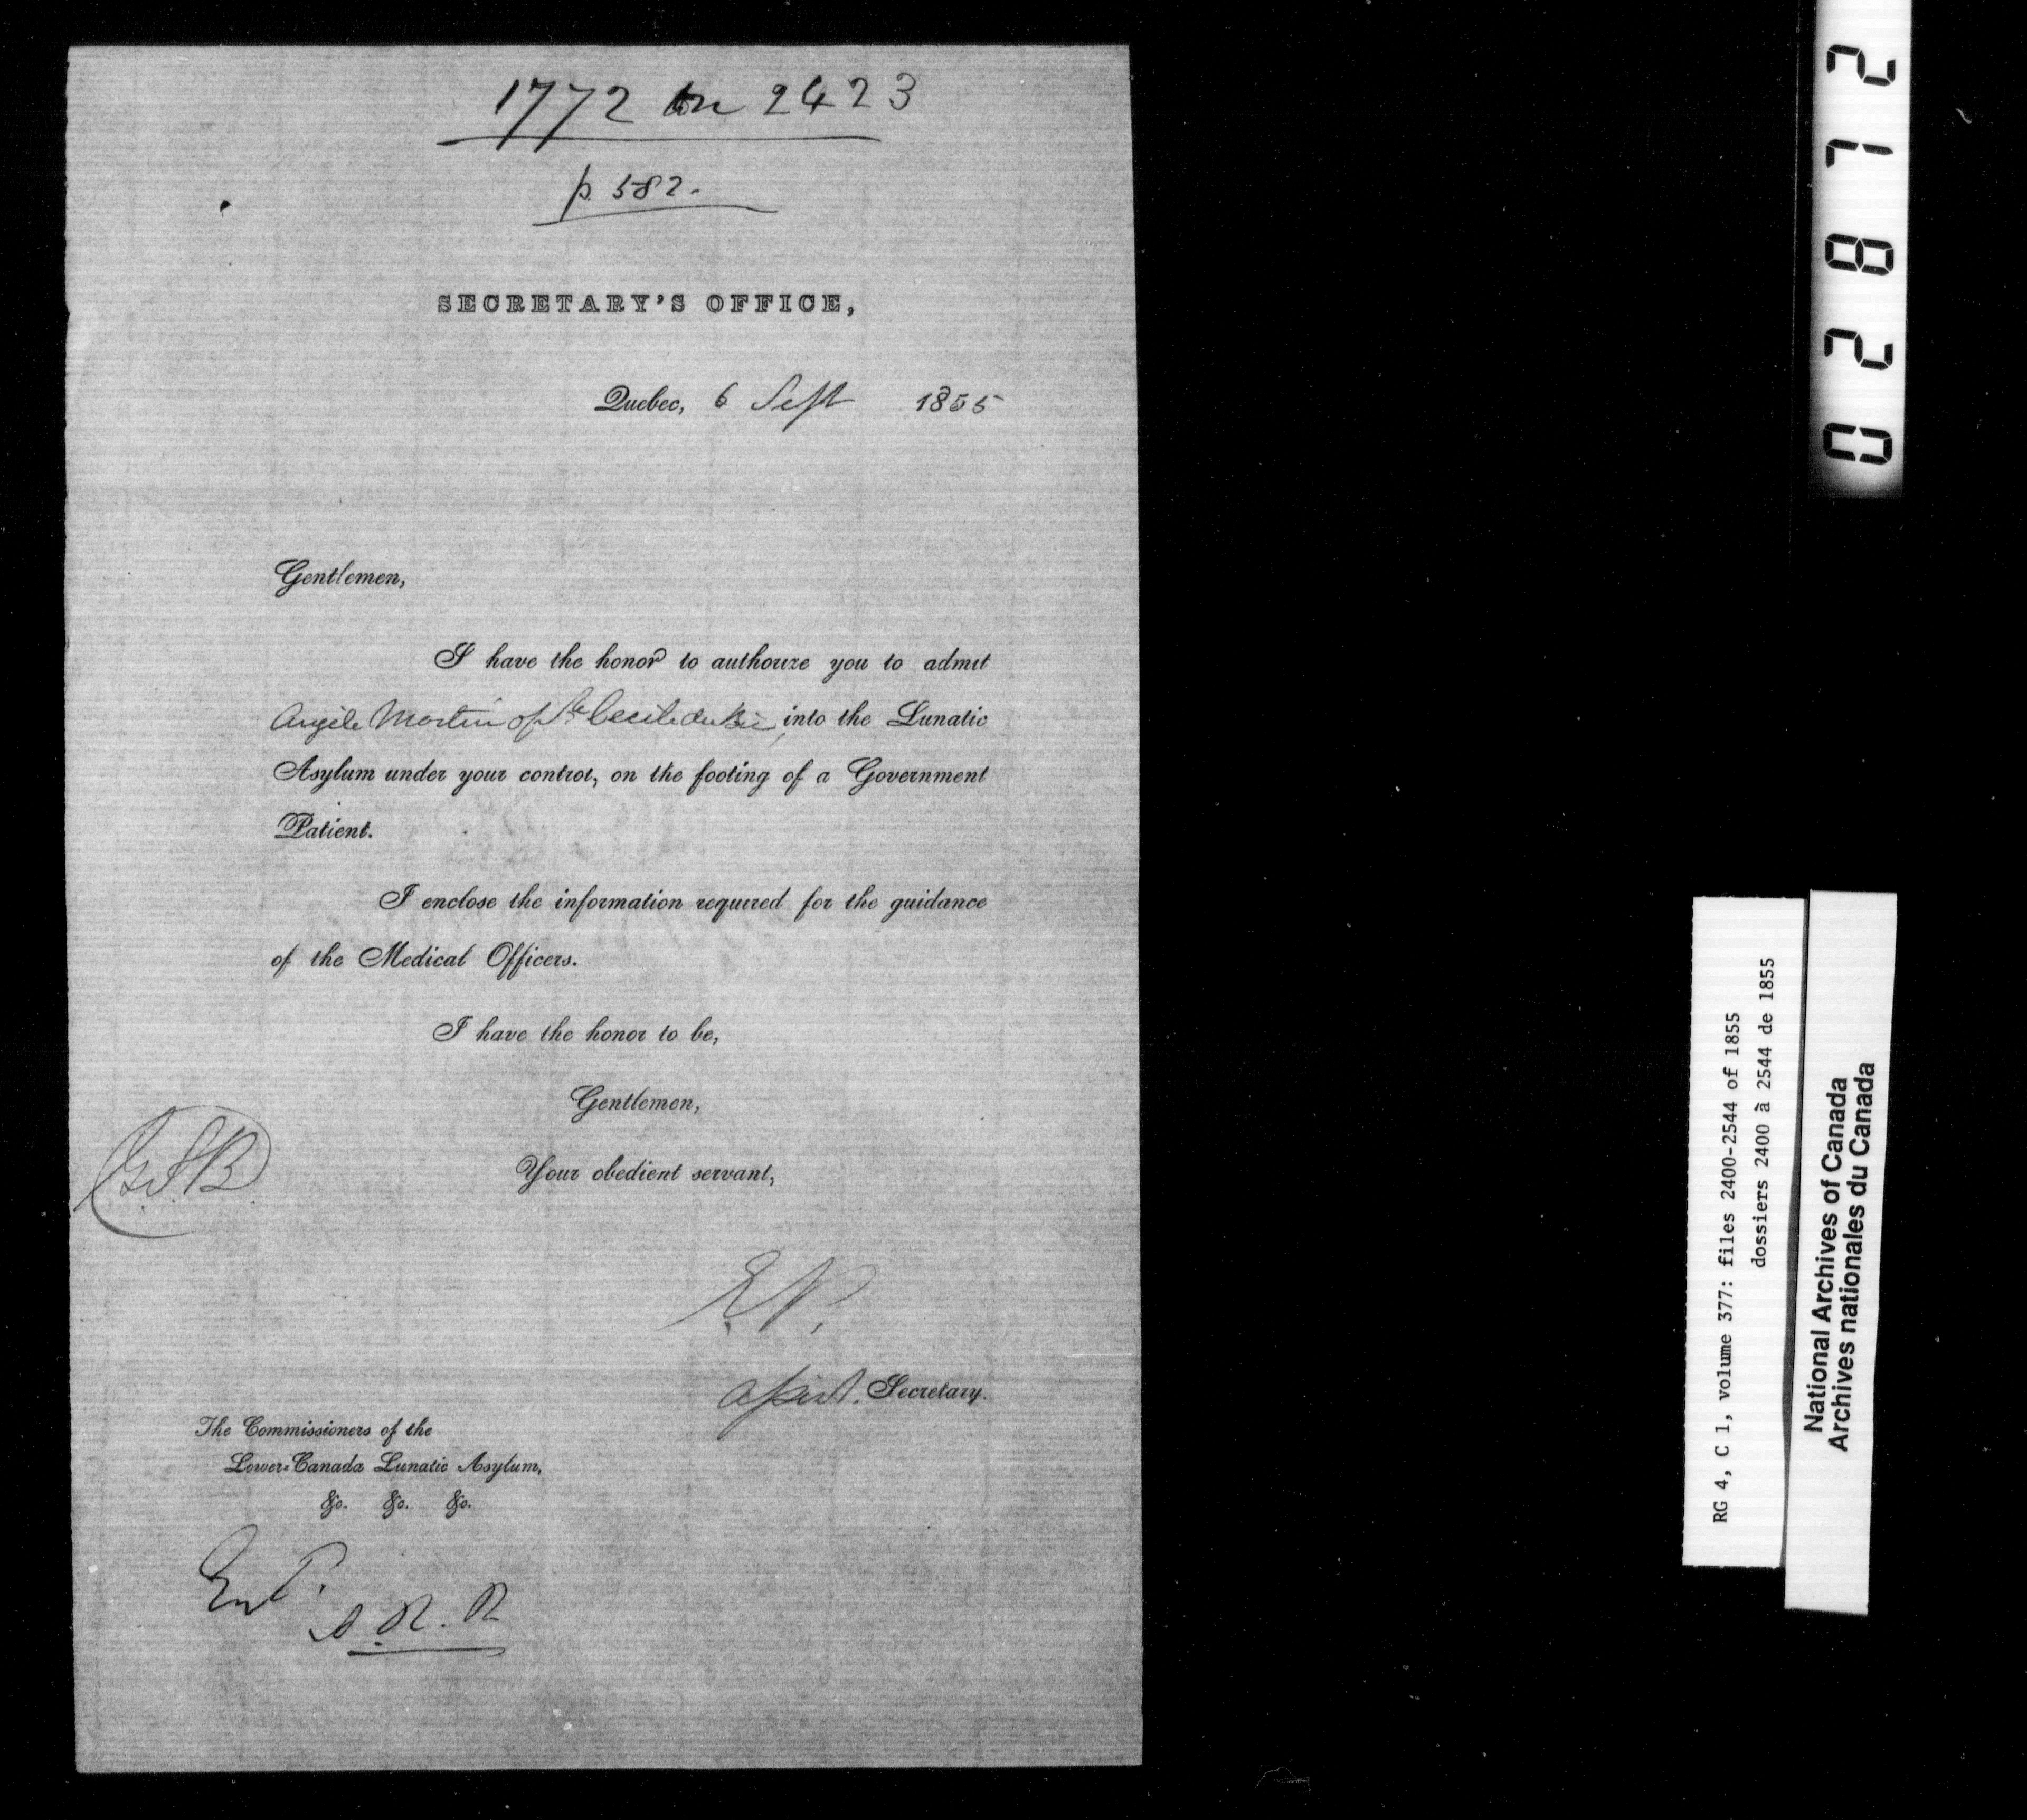 1772 on 2423
p. 582.
SECRETARY'S OFFICE,
Quebec, 6 Sept 1855
Gentlemen,
I have the honor to authorize you to admit
Angèle Martin of Ste Cecile du Bic, into the Lunatic
Asylum under your control, on the footing of a Government
Patient.
I enclose the information required for the guidance
of the Medical Officers.
I have the honor to be,
Gentlemen,
Your obedient servant,
E.P.
Assist. Secretary.
The Commissioners of the
Lower-Canada Lunatic Asylum,
&c. &c. &c.
Ent.
A.R.R
02872
RG 4, C 1, volume 377: files 2400-2544 of 1855
dossiers 2400 à 2544 de 1855
National Archives of Canada
Archives nationales du Canada